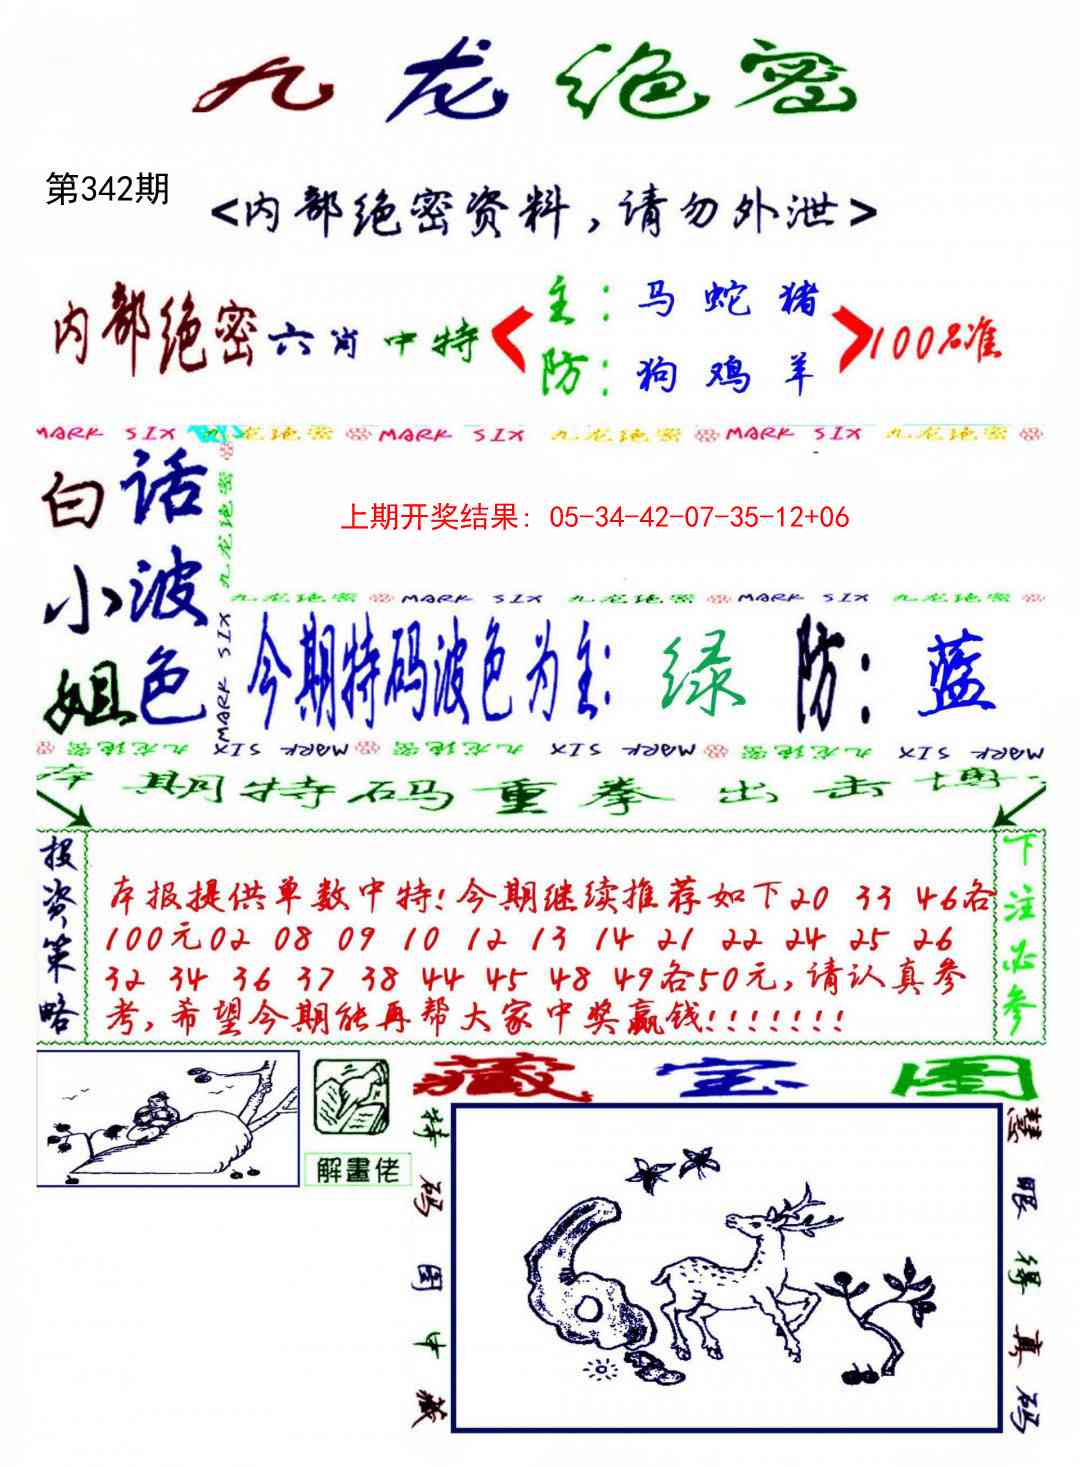 九龙绝密
第342期
<内部绝密资料,请勿外泄>
内部绝密六肖中特
主：马 蛇 猪
防：狗 鸡 羊
100%准
MARK SIX 九龙绝密 MARK SIX 九龙绝密 MARK SIX 九龙绝密
白话
小波
姐色
九龙绝密
MARK SIX
上期开奖结果：05-34-42-07-35-12+06
九龙绝密 MARK SIX 九龙绝密 MARK SIX 九龙绝密
今期特码波色为主：绿 防：蓝
九龙绝密 MARK SIX 九龙绝密 MARK SIX 九龙绝密 MARK SIX
本期特码重拳出击博
投资策略
本报提供单数中特!今期继续推荐如下20 33 46各
100元02 08 09 10 12 13 14 21 22 24 25 26
32 34 36 37 38 44 45 48 49各50元,请认真参
考,希望今期能再帮大家中奖赢钱!!!!!!!
下注必参
解畫佬
藏宝图
特码图中藏
慧眼得真码